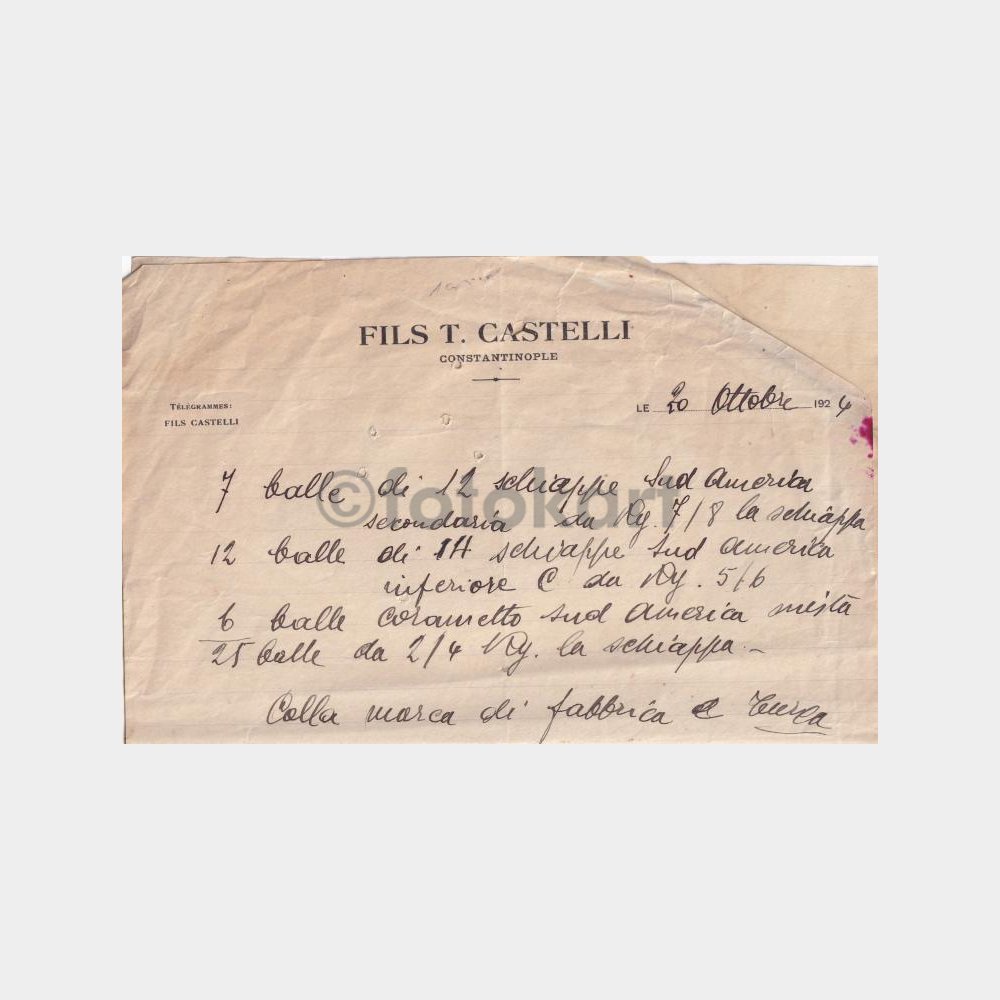 FILS T. CASTELLI
CONSTANTINOPLE
TÉLÉGRAMMES:
FILS CASTELLI
LE 20 Ottobre 1924
©fotokart
7 balle di 12 schiappe Sud America
secondaria da Kg. 7/8 la schiappa
12 balle di 14 schiappe Sud America
inferiore C da Kg. 5/6
6 balle corametto Sud America mista
25 balle da 2/4 Kg. la schiappa.-
Colla marca di fabbrica e Turca